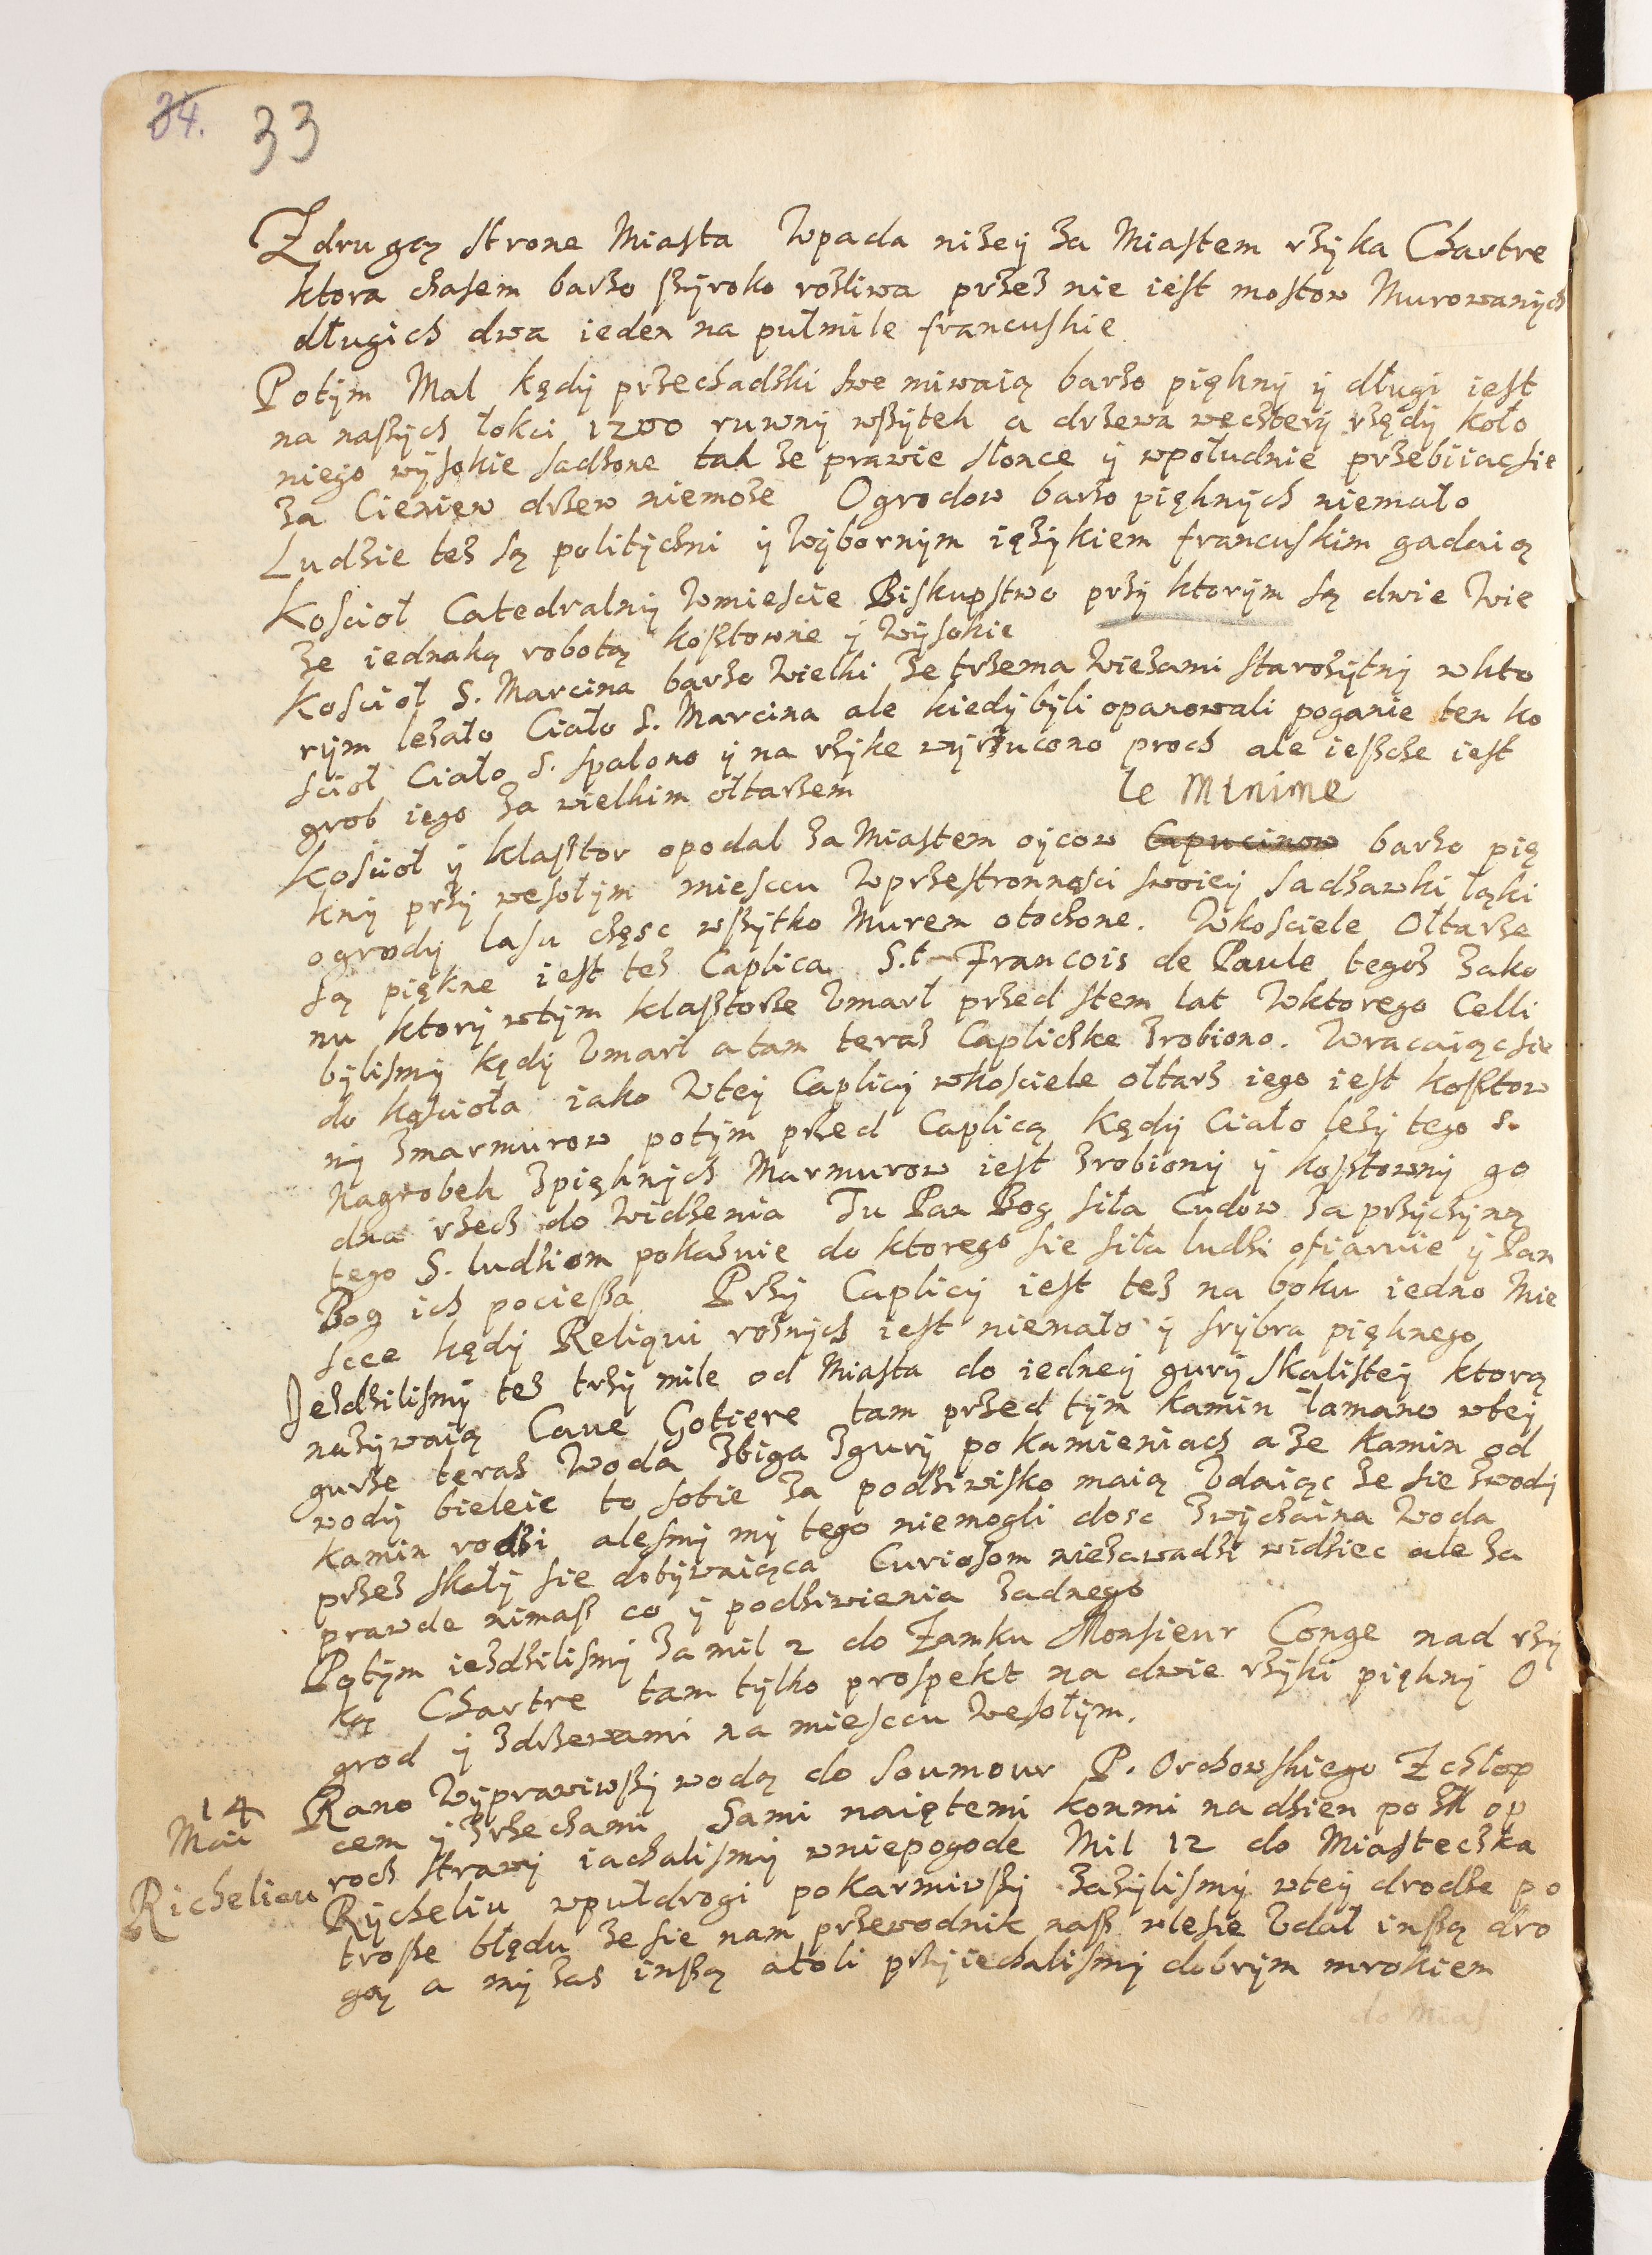 34. 33
Zdrugą strone Miasta Wpada niżey za Miastem rzyka Chartre
ktora czasem barzo szyroko rozliwa przez nie iest mostow Murowanych
długich dwa ieden na pułmile francuskie
Potym Mal kędy przechadzki swe miwaią barzo piękny y długi iest
na naszych łokci 1200 ruwny wszytek a drzewa wecztery rzędy koło
niego wysokie sadzone tak ze prawie słonce y wpołudnie przebiiacsie
za Cieniew drzew niemoże Ogrodow barzo pięknych niemało
Ludzie tez są polityczni y Wybornym ięzykiem francuskim gadaią
Kościoł Catedralny Wmieście Biskupstwo przy ktorym są dwie Wie
ze iednaką robotą kosztowne y Wysokie
Kościoł S. Marcina barzo Wielki Ze trzema Wiezami starozytny wkto
rym lezało Ciało S. Marcina ale kiedy byli opanowali poganie ten ko
scioł Ciało S. spalono y na rzyke wyrzucono proch ale ieszcze iest
grob iego za wielkim ołtarzem
le Minime
Kościoł y klasztor opodal za Miastem oycow Capucinow barzo pię
kny przy wesołym miesccu Wprzestronności swoiey sadzawki łąki
ogrody lasu częsc wszytko Murem otoczone. Wkościele Ołtarze
są piękne iest tez Caplica S.t Francois de Paule tegoz zako
nu ktory wtym klasztorze Umarł przed stem lat Wktorego Celli
bylismy kędy Umarł a tam teraz Capliczke zrobiono. Wracaiącsie
do kościoła iako Wtey Caplicy wkosciele ołtarz iego iest kosztow
ny zmarmurow potym przed Caplicą kędy Ciało lezy tego S.
Nagrobek zpięknych Marmurow iest zrobiony y kosztowny go
dna rzecz do Widzenia Tu Pan Bog siła Cudow za przyczyną
tego S. ludziom pokazuie do ktorego sie siła ludzi ofiaruie y Pan
Bog ich pociesza Przy Caplicy iest tez na boku iedno Mie
scce kędy Reliqui roznych iest niemało y srybra pięknego
Jezdzilismy tez trzy mile od Miasta do iedney gury skalistey ktorą
nazywaią Caue Gotiere tam przed tym kamin łamano wtey
gurze teraz Woda Zbiga zgury po kamieniach a ze kamin od
wody bieleie to sobie za podziwisko maią Udaiąc ze sie zwody
kamin rodzi alesmy my tego niemogli dosc zwyczaina Woda
przez skały sie dobywaiąca Curiosom niezawadzi widziec ale za
prawde nimasz co y podziwienia zadnego
Potym iezdzilismy za mil 2 do Zamku Monsieur Conge nad rzy
ką Chartre tam tylko prospekt na dwie rzyki piękny O
grod y zdrzewami na miesccu Wesołym.
14 Rano Wyprawiwszy wodą do Soumour P. Orchowskiego Zchłop
Mai cem y zrzechami Sami naiętemi konmi na dzien po op
roch strawy iachalismy wniepogode Mil 12 do Miasteczka
Richelieu Rycheliu wpułdrogi pokarmiwszy zazylismy wtey drodze po
trosze błędu ze sie nam przewodnik nasz wlesie Udał inszą dro
gą a my zas inszą atoli przyiechalismy dobrym mrokiem
do Mias